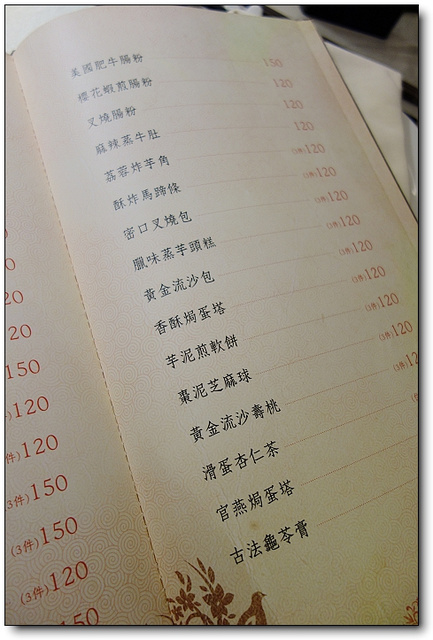 0
0
20
20
150
120
件)120
(3件)150
(3件)150
(3件)120
50
美國肥牛腸粉 150
櫻花蝦煎腸粉 120
叉燒腸粉 120
麻辣蒸牛肚 120
荔蓉炸芋角 (3件)120
酥炸馬蹄條 (3件)120
密口叉燒包 (3件)120
臘味蒸芋頭糕 (3件)120
黃金流沙包 (3件)120
香酥焗蛋塔 (3件)120
芋泥煎軟餅 (3件)120
棗泥芝麻球 (3件)120
黃金流沙壽桃 (3件)12
滑蛋杏仁茶
官燕焗蛋塔
古法龜苓膏